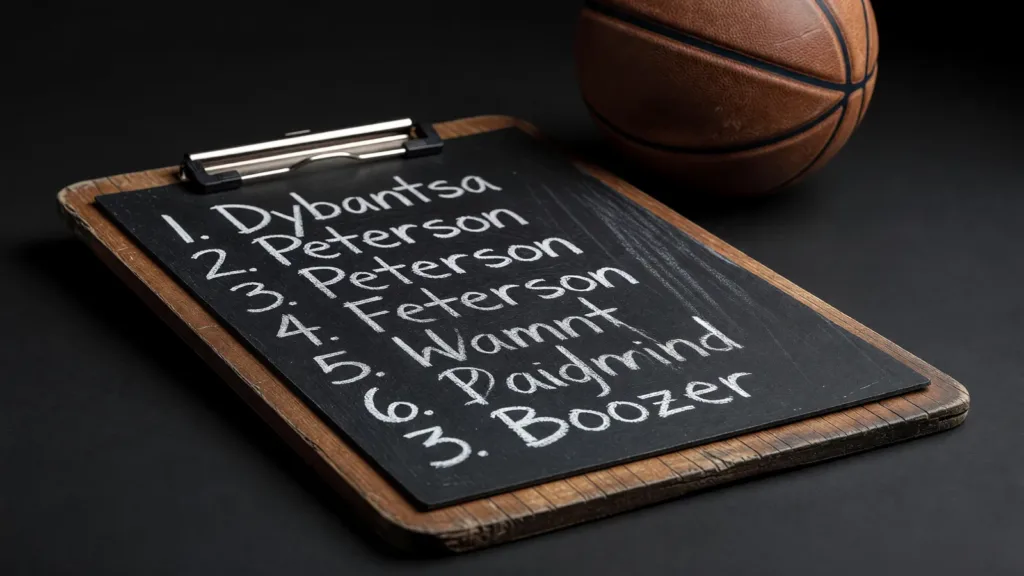 1. Dybantsa
2. Peterson
3. Peterson
4. Feterson
5. Wamnt
6. Daigmind
3. Boozer